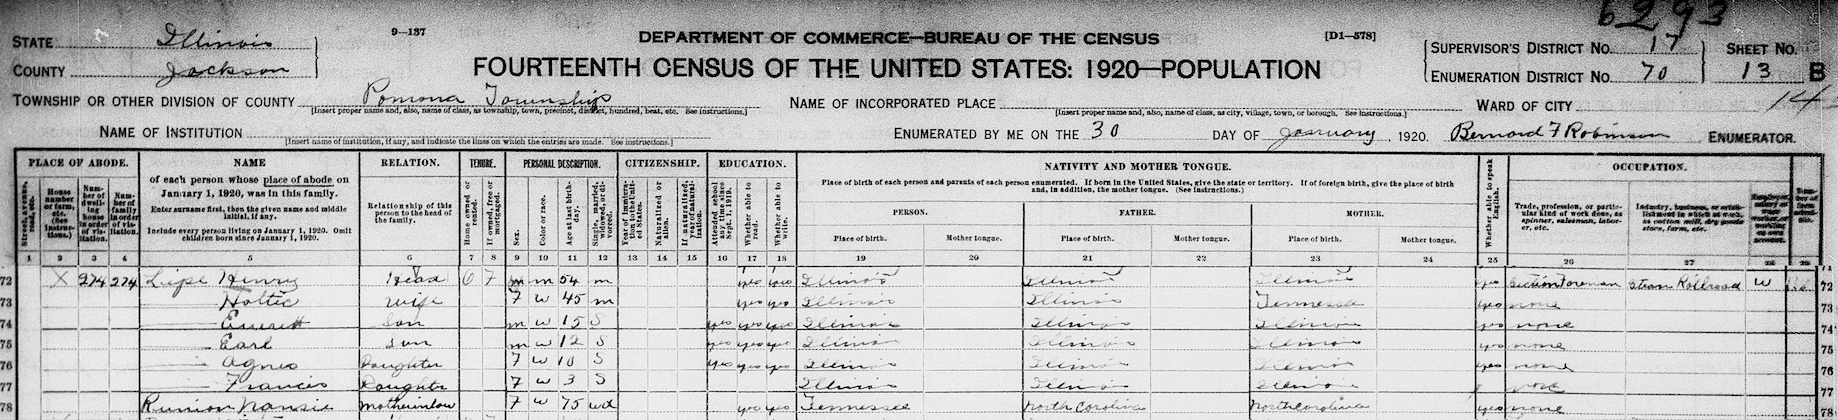 6293
STATE Illinois
9-137
DEPARTMENT OF COMMERCE—BUREAU OF THE CENSUS
[D1-578]
SUPERVISOR'S DISTRICT No. 17
SHEET No.
COUNTY Jackson
FOURTEENTH CENSUS OF THE UNITED STATES: 1920—POPULATION
ENUMERATION DISTRICT No. 70
13 B
TOWNSHIP OR OTHER DIVISION OF COUNTY Pomona Township
NAME OF INCORPORATED PLACE
WARD OF CITY
14
[Insert proper name and, also, name of class, as township, town, precinct, district, hundred, beat, etc. See instructions.]
[Insert proper name and, also, name of class, as city, village, town, or borough. See instructions.]
NAME OF INSTITUTION
ENUMERATED BY ME ON THE 30 DAY OF January, 1920. Bernard F Robinson ENUMERATOR.
[Insert name of institution, if any, and indicate the lines on which the entries are made. See instructions.]
PLACE OF ABODE. NAME RELATION. TENURE. PERSONAL DESCRIPTION. CITIZENSHIP. EDUCATION. NATIVITY AND MOTHER TONGUE. OCCUPATION.
of each person whose place of abode on January 1, 1920, was in this family.
Enter surname first, then the given name and middle initial, if any.
Include every person living on January 1, 1920. Omit children born since January 1, 1920.
Relationship of this person to the head of the family.
Place of birth of each person and parents of each person enumerated. If born in the United States, give the state or territory. If of foreign birth, give the place of birth and, in addition, the mother tongue. (See instructions.)
PERSON. FATHER. MOTHER.
Place of birth. Mother tongue. Place of birth. Mother tongue. Place of birth. Mother tongue.
Whether able to speak English.
Trade, profession, or particular kind of work done, as spinner, salesman, laborer, etc.
Industry, business, or establishment in which at work, as cotton mill, dry goods store, farm, etc.
Street, avenue, road, etc.
House number or farm, etc. (See instructions.)
Number of dwelling house in order of visitation.
Number of family in order of visitation.
Home owned or rented.
If owned, free or mortgaged.
Sex.
Color or race.
Age at last birthday.
Single, married, widowed, or divorced.
Year of immigration to the United States.
Naturalized or alien.
If naturalized, year of naturalization.
Attended school any time since Sept. 1, 1919.
Whether able to read.
Whether able to write.
1 2 3 4 5 6 7 8 9 10 11 12 13 14 15 16 17 18 19 20 21 22 23 24 25 26 27 28
72 X 274 274 Lipe Henry Head O F m m 54 m yes yes Illinois Illinois Illinois yes Section Foreman Steam Rollroad W 72
73 Hottie wife F w 45 m yes yes Illinois Illinois Tennessee yes none 73
74 Everett son m w 15 S yes yes yes Illinois Illinois Illinois yes none 74
75 Earl son m w 12 S yes yes yes Illinois Illinois Illinois yes none 75
76 Agnes Daughter F w 10 S yes yes yes Illinois Illinois Illinois yes none 76
77 Francis Daughter F w 3 S Illinois Illinois Illinois none 77
78 Runion Nansie motherinlaw F w 75 wd yes yes Tennessee North Carolina North Carolina yes none 78